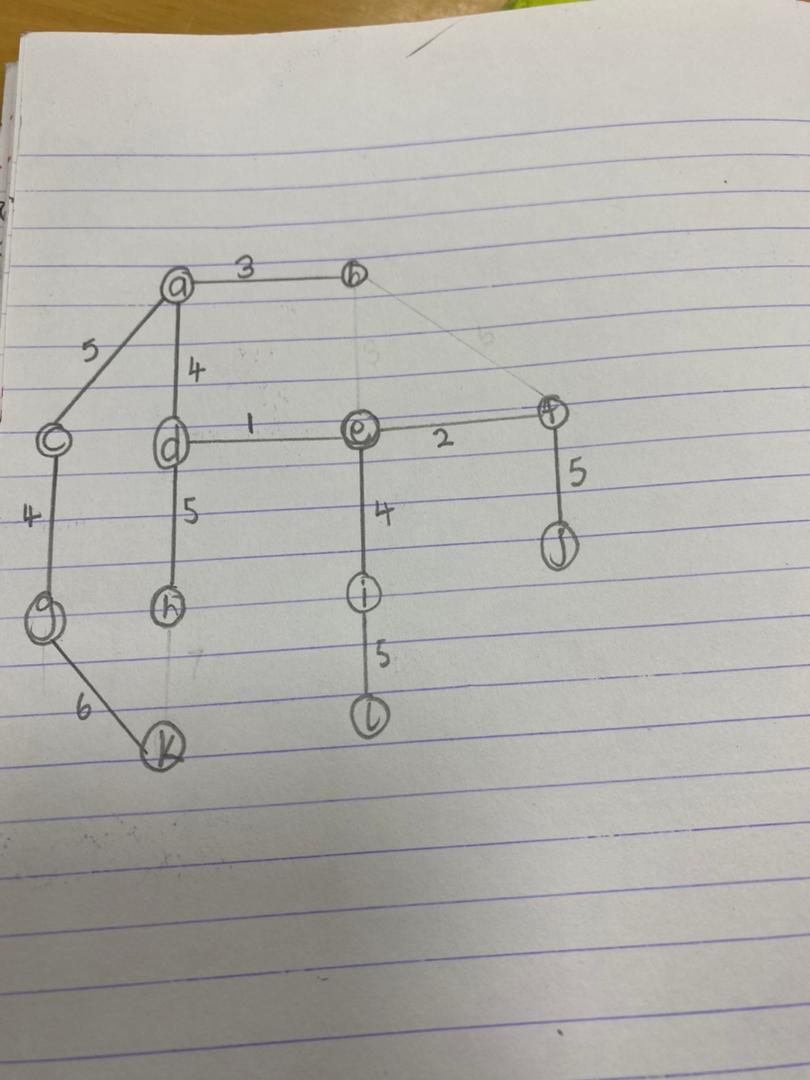 a 3 b
5 4 3 6
c d 1 e 2 f
4 5 4 5
g h i j
7 5
6
k l